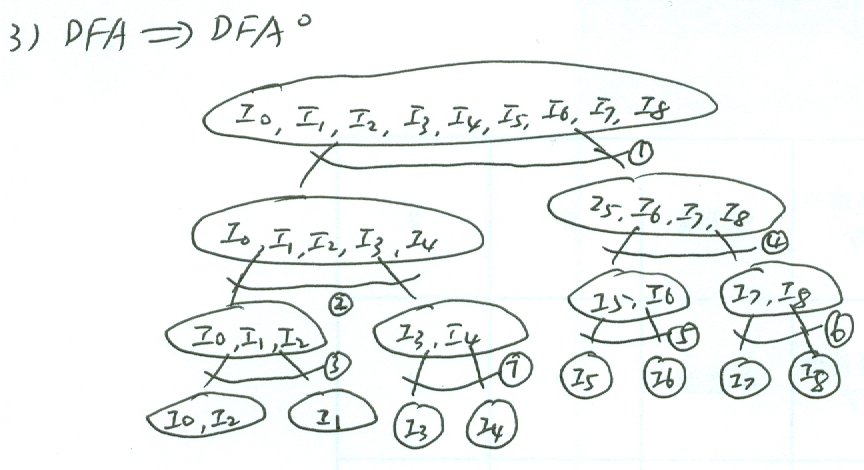 3) DFA ⇒ DFA°
I0, I1, I2, I3, I4, I5, I6, I7, I8
①
I0, I1, I2, I3, I4
I5, I6, I7, I8
④
②
I0, I1, I2
I3, I4
I5, I6
I7, I8
③
⑦
⑤
⑥
I0, I2
I1
I3
I4
I5
I6
I7
I8